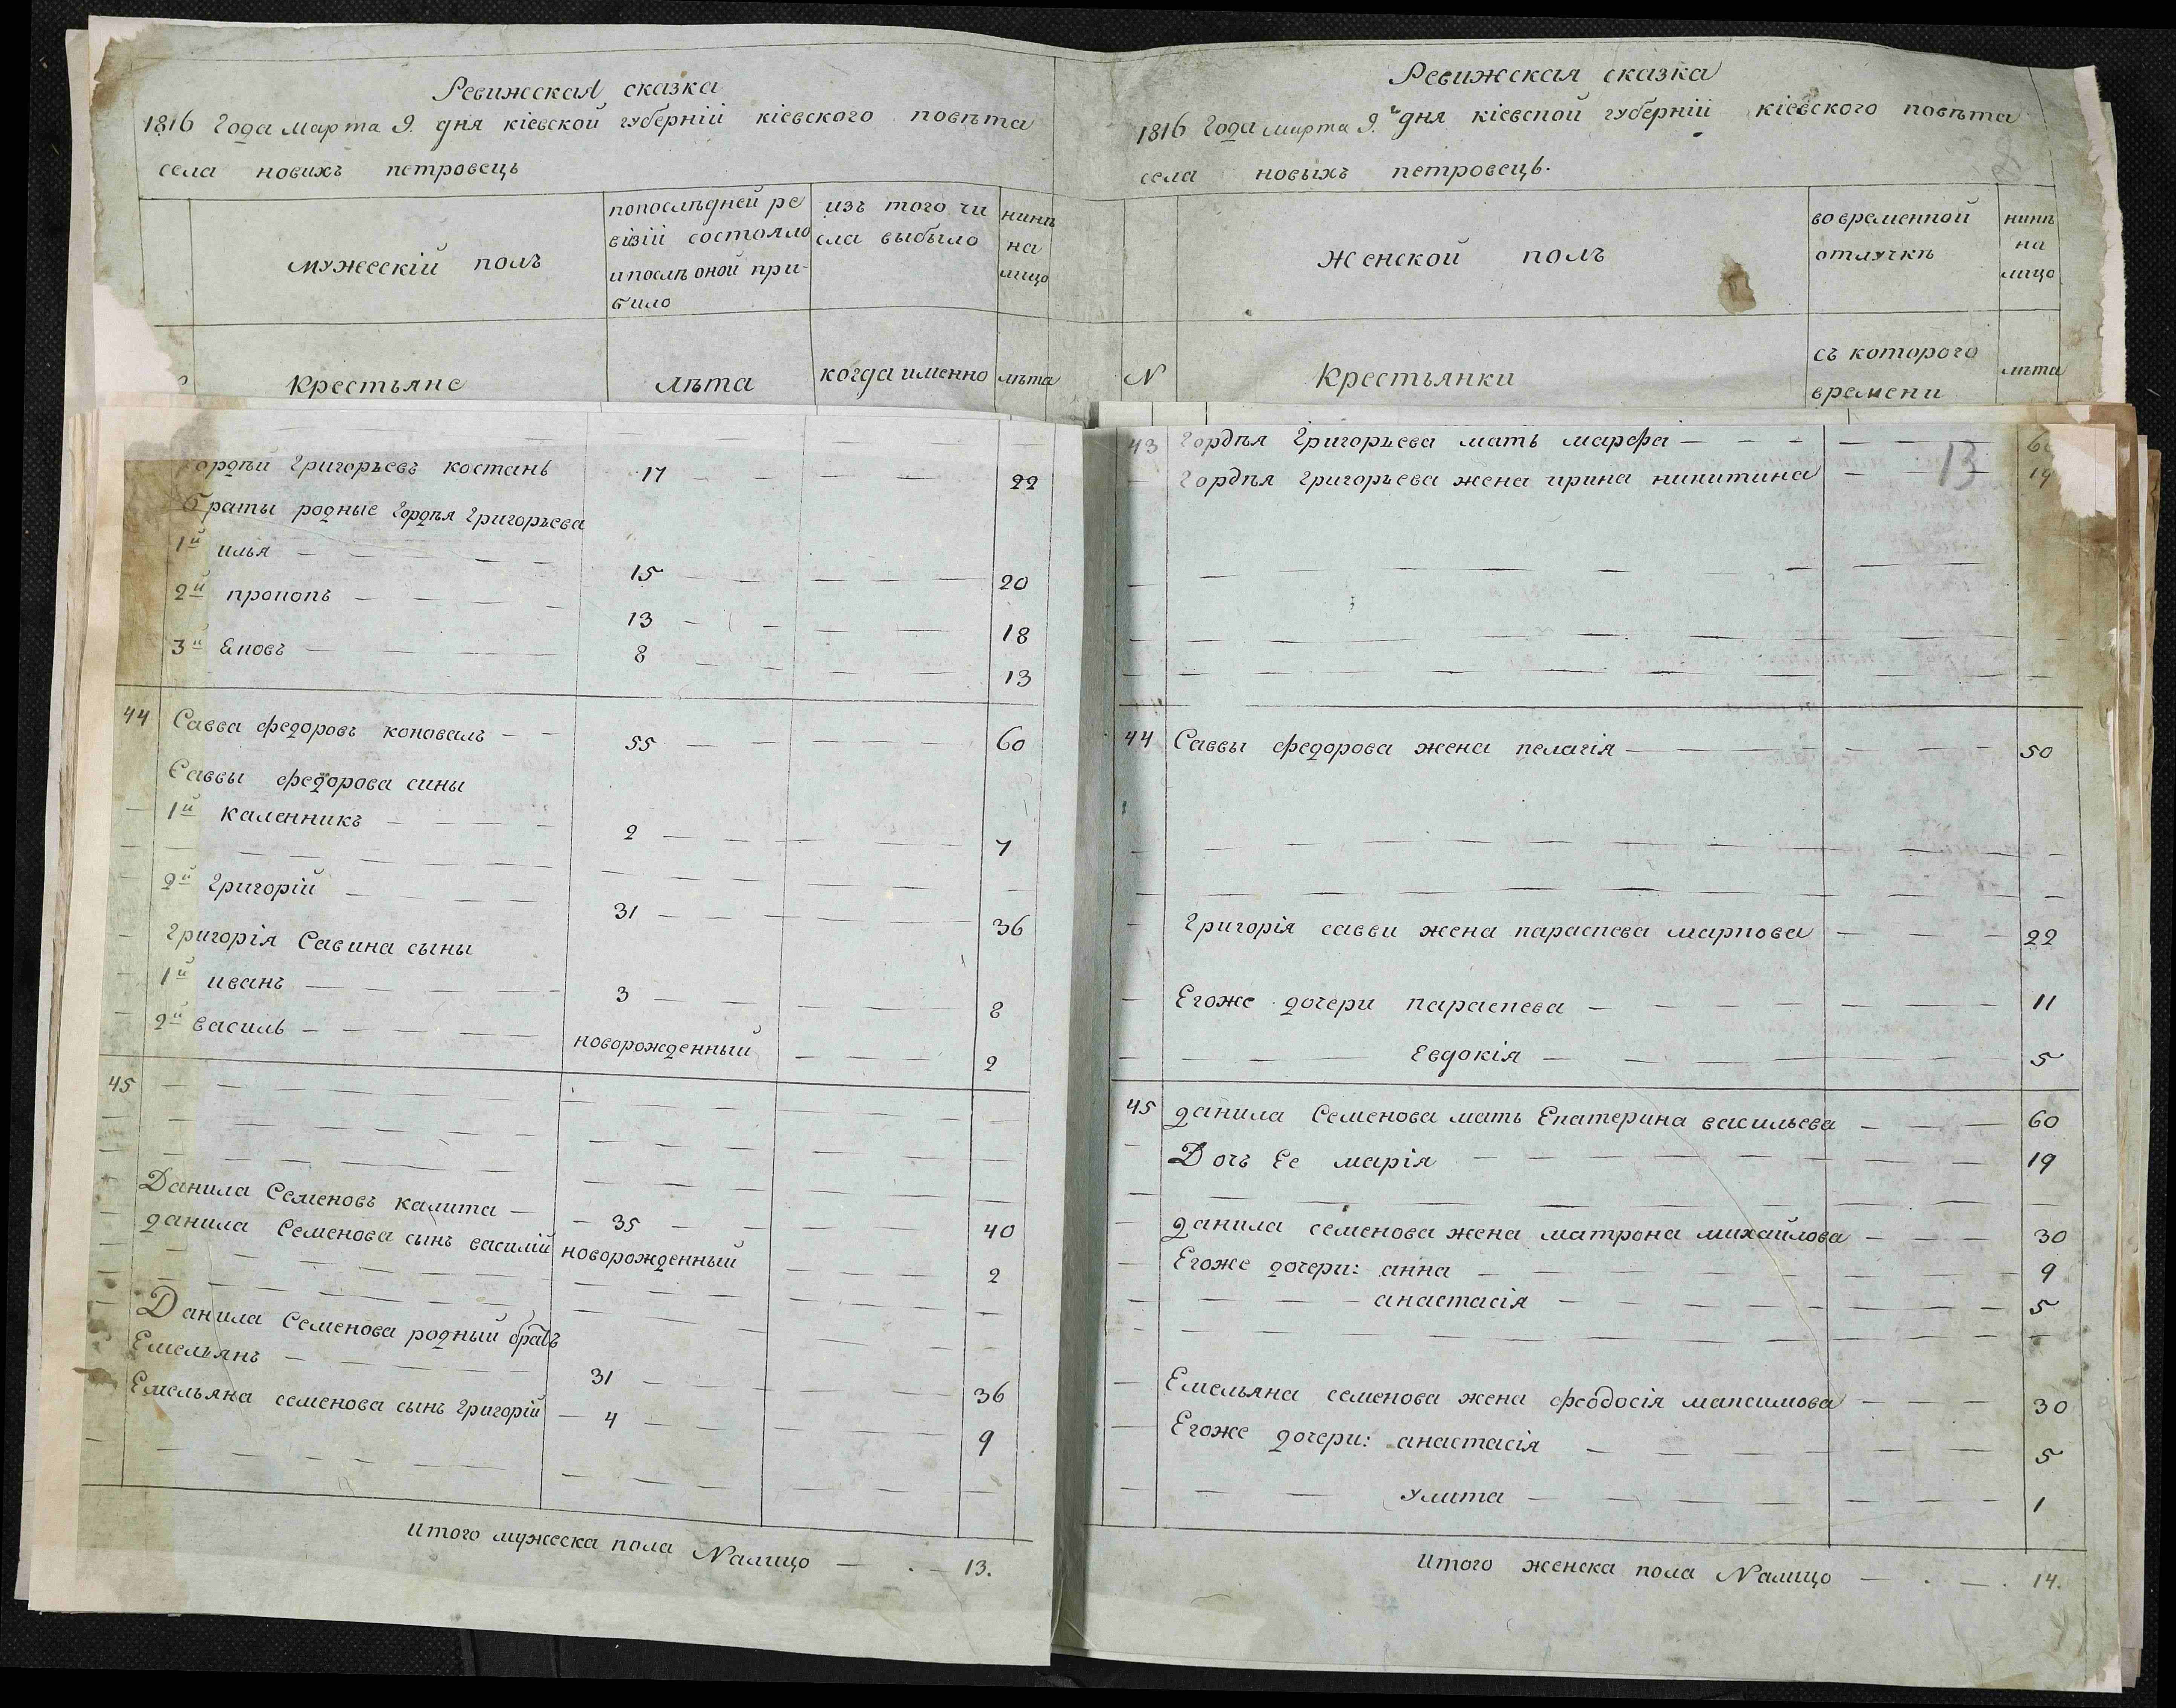 Ревижская сказка
1816 Года марта 9. дня кіевской губерніи кіевского повѣта
села новихъ петровець
мужескій полъ
попослѣдней ре
візіи состояло
и послѣ оной при-
било
изъ того чи
сла выбыло
нинѣ
на
лицо
Крестьяне
лѣта
когда именно
лѣта
Ревижская сказка
1816 Года марта 9.го дня кіевской губерніи кіевского повѣта
села новыхъ петровець.
женской полъ
во временной
отлучкѣ
нинѣ
на
лицо
N
Крестьянки
съ которого
времени
лѣта
ордѣй григорьевъ костань 17 22
браты родные Гордѣя григорьева
1й илья 15 20
2й прокопъ 13 18
3й Яковъ 8 13
44 Савва федоровъ коновалъ 55 60
Саввы федорова сины
1й каленникъ 2 7
2й григорій 31 36
григорія Савина сыны
1й иванъ 3 8
2й василь новорожденный 2
45
Данила Семеновъ калита 35 40
данила Семенова сынъ василій новорожденный 2
Данила Семенова родный братъ
Емельянъ 31 36
Емельяна семенова сынъ григорій 4 9
Итого мужеска пола Налицо 13.
13
43 Гордѣя григорьева мать марфа
Гордѣя григорьева жена ирина никитина 19
44 Саввы федорова жена пелагія 50
григорія савви жена параскева маркова 22
Егоже дочери параскева 11
Евдокія 5
45 данила Семенова мать Екатерина васильева 60
Дочь Ее марія 19
данила семенова жена матрона михайлова 30
Егоже дочери: анна 9
анастасія 5
Емельяна семенова жена феодосія максимова 30
Егоже дочери: анастасія 5
Улита 1
Итого женска пола Налицо 14.